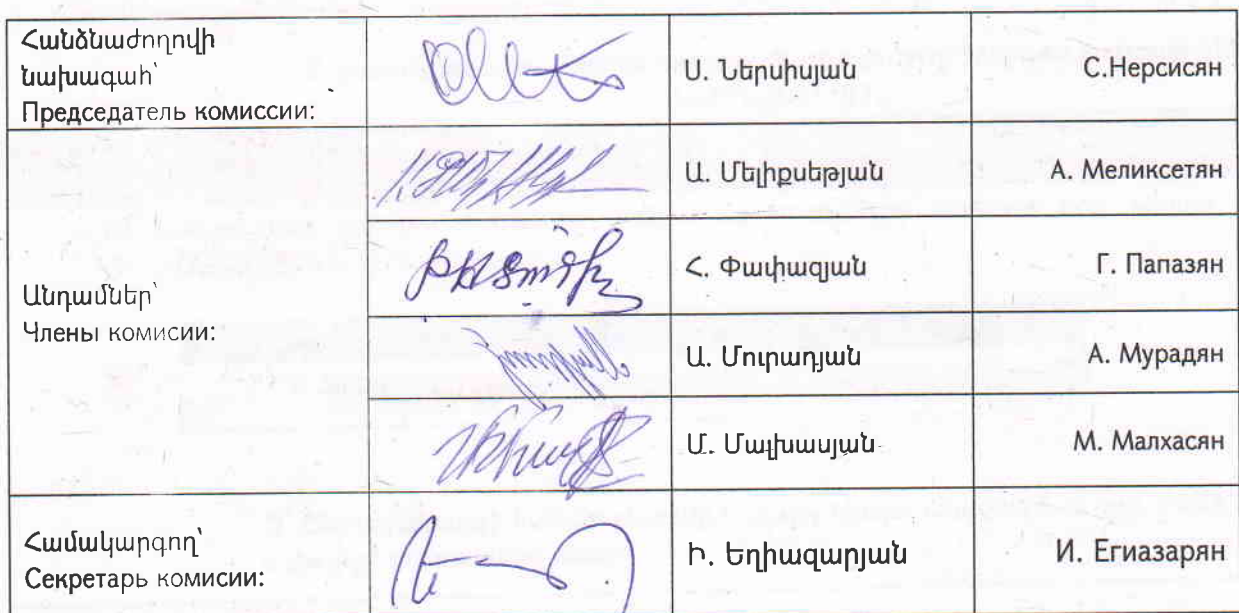 Հանձնաժողովի
նախագահ՝
Председатель комиссии:
Ս. Ներսիսյան
С.Нерсисян
Ա. Մելիքսեթյան
А. Меликсетян
Անդամներ՝
Члены комисии:
Հ. Փափազյան
Г. Папазян
Ա. Մուրադյան
А. Мурадян
Մ. Մալխասյան
М. Малхасян
Համակարգող՝
Секретарь комисии:
Ի. Եղիազարյան
И. Егиазарян